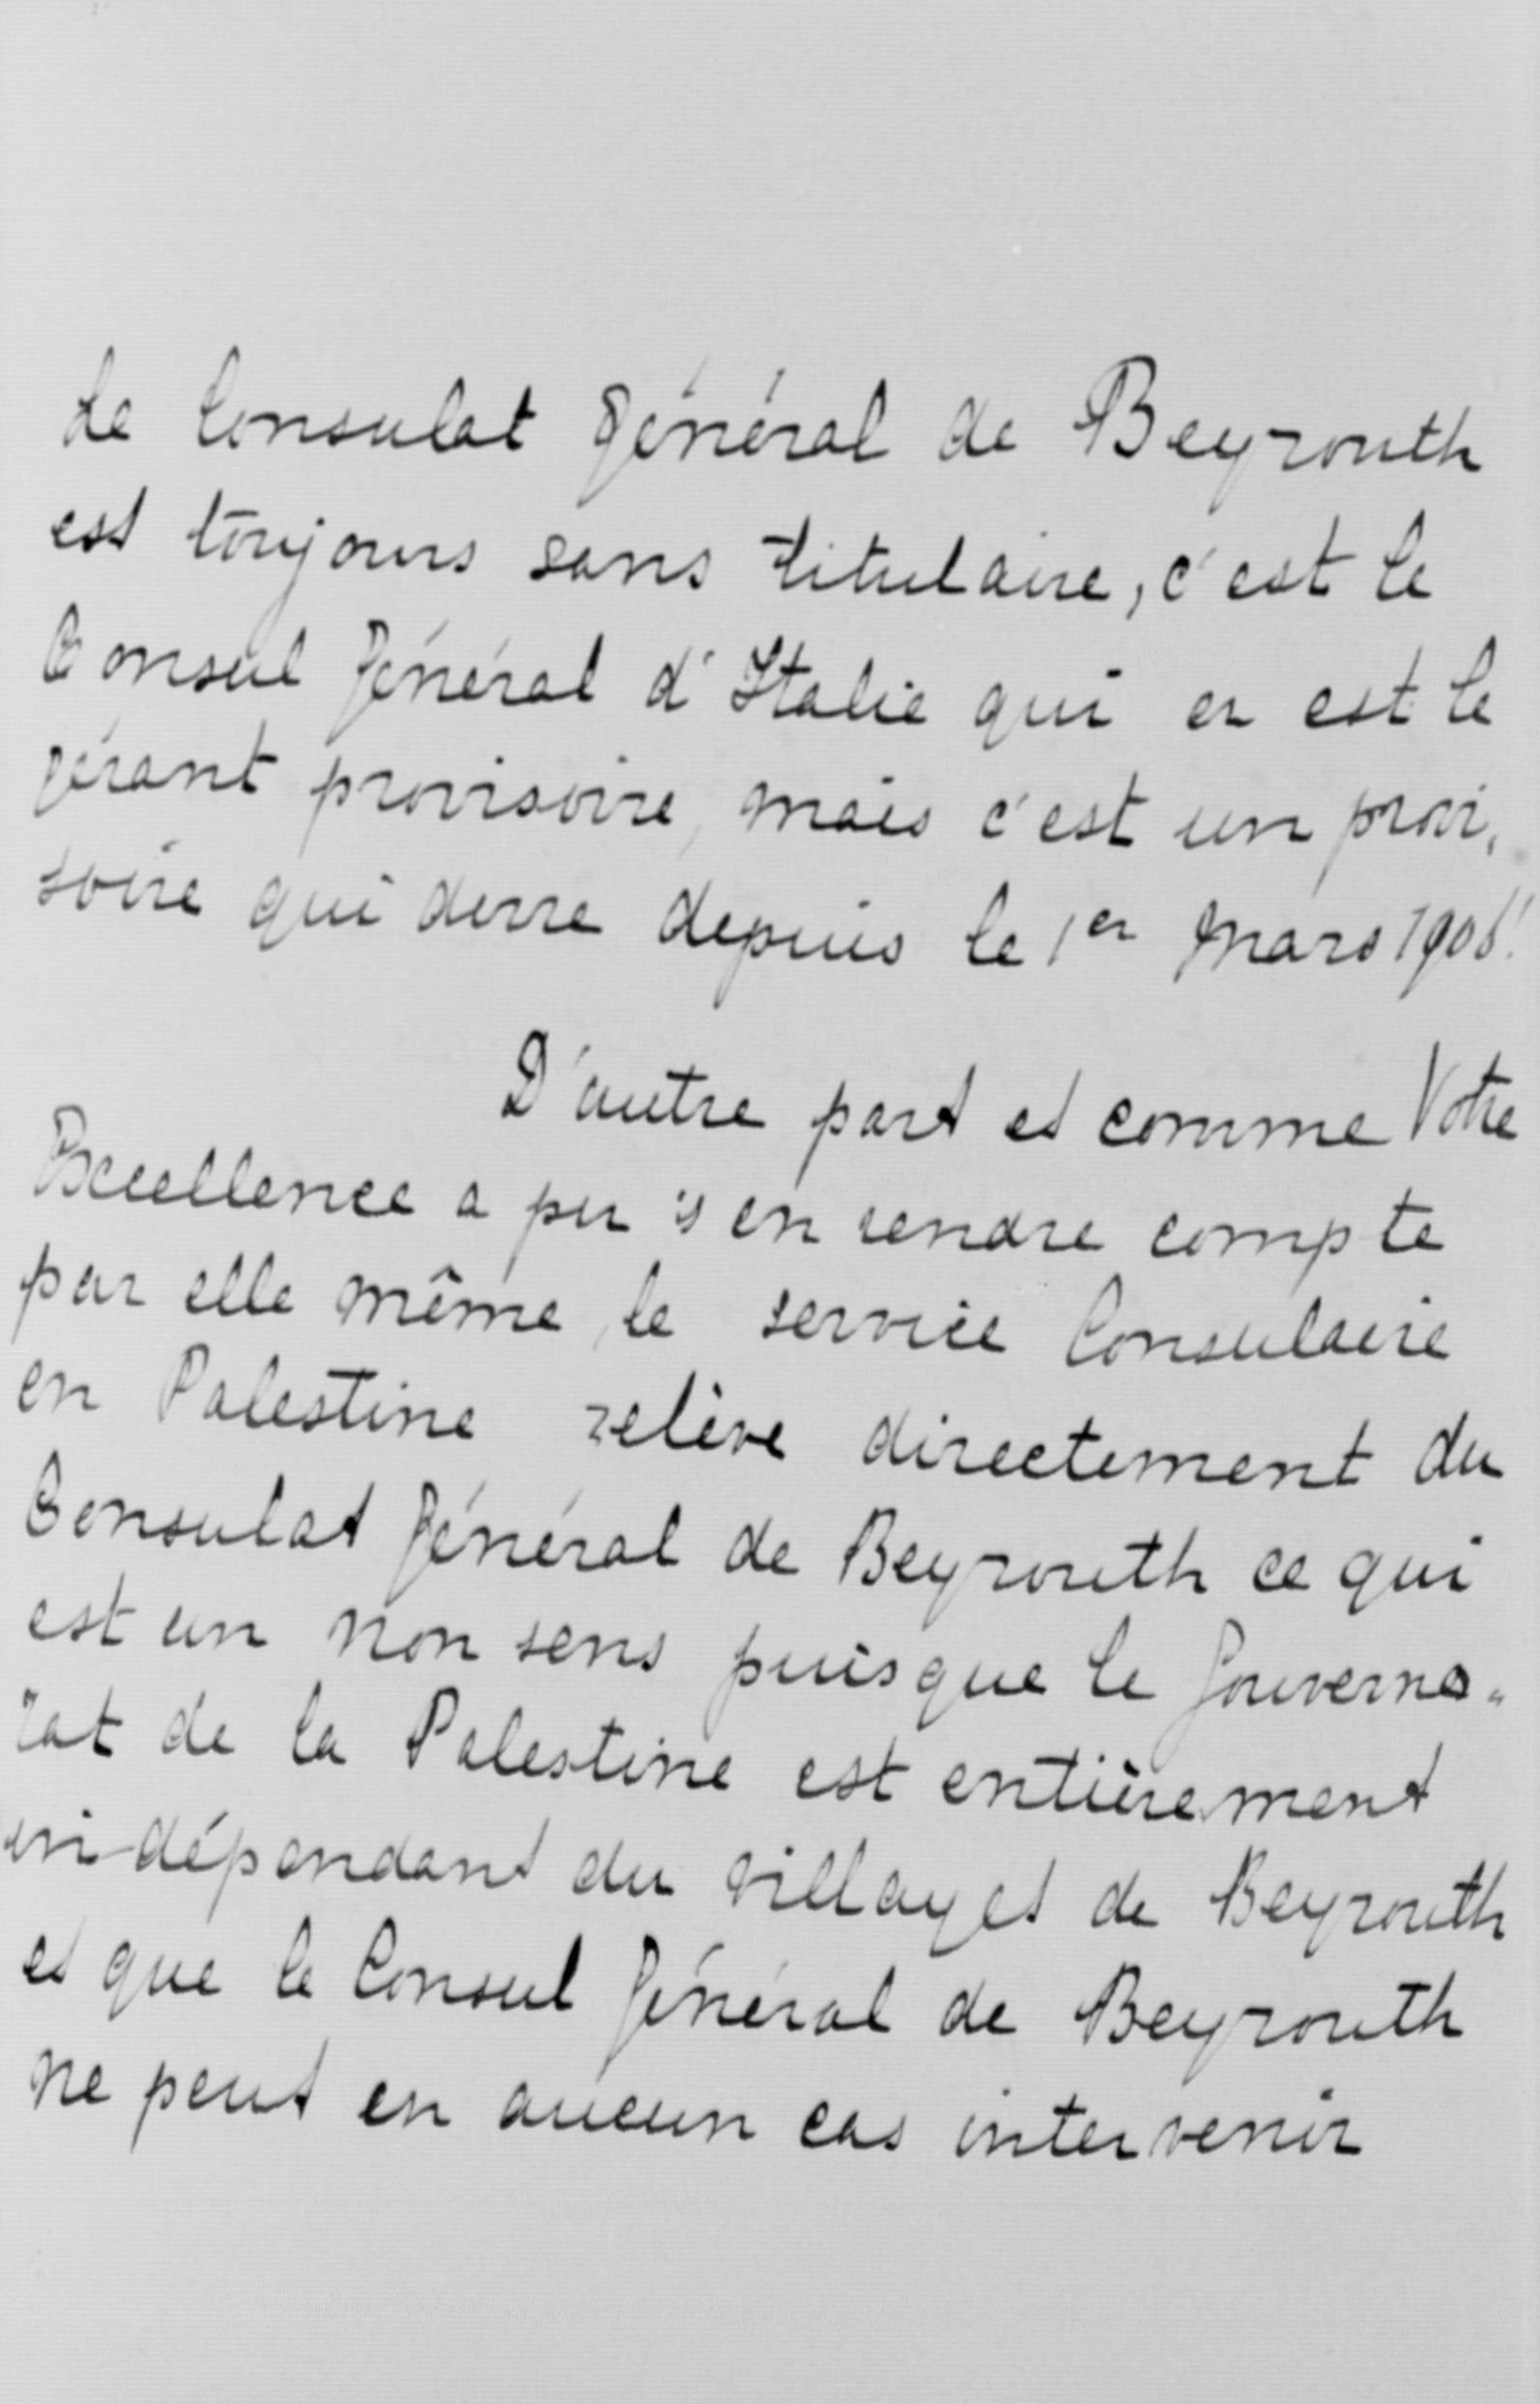 Le Consulat Général de Beyrouth
est toujours sans titulaire, c'est le
Consul Général d'Italie qui en est le
gérant provisoire, mais c'est un provi,
soire qui dure depuis le 1er Mars
D'autre part et comme Votre
Excellence a pu s'en rendre compte
par elle même, le service Consulaire
en Palestine relève directement du
Consulat Général de Beyrouth ce qui
est un non sens puisque le Gouverno-
rat de la Palestine est entièrement
indépendant du villayet de Beyrouth
et que le Consul Général de Beyrouth
ne peut en aucun cas intervenir